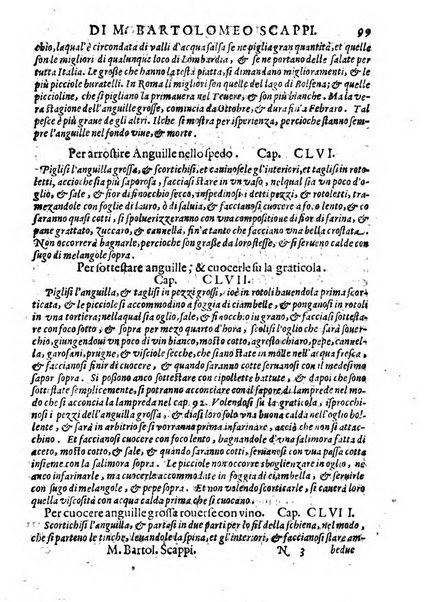 DI Mͦ BARTOLOMEO SCAPPI. 99
chio, laqual'è circondata di valli d'acqua salsa se ne piglia gran quantità, et quelle
son le migliori di qualunque loco di Lombardia, & se ne portano delle salate per
tutta Italia. Le grosse che hanno la testa piatta, si domandano miglioramenti, & le
più picciole buratelli. In Roma li migliori son quelle del lago di Bolsena; et quelle
piccioline, che si pigliano la primauera nel Teuere, & son più bianche. Ma la ve-
ra stagione dell'anguille grosse, comincia da Ottobre, & dura fin a Febraro. Tal
pesce è più graue de gli altri. Il che si mostra per isperienza, percioche stanno sem-
pre l'anguille nel fondo viue, & morte.
Per arrostire Anguille nello spedo. Cap. CLVI.
Piglisi l'anguilla grossa, & scortichisi, et cauinosele gl'interiori, et taglisi in roto-
letti, accioche sia più saporosa, & facciasi stare in vn vaso, nel qual sia vn poco d'o-
glio, & sale, & fior di finocchio seccho, & dapoi spartinosi i pezzi, & rotoletti, tra-
mezandoli con foglie di lauro, ò di saluia, & facciansi cuocere a lento foco, & co
me saranno quasi cotti, si spoluerizzeranno con vna compositione di fior di farina, &
pan grattato, zuccaro, & cannella, fin a tanto che facciano vna bella crostata.
Non occorrerà bagnarle, percioche son grasse da lor o stesse, & si serueno calde con
sugo di melangole sopra.
Per sottestare anguille, & cuocerle su la graticola.
Cap. CLVII.
Piglisi l'anguilla, & taglisi in pezzi grossi, cioè in rotoli hauendola prima scortica-
ta, & le picciole si accommodino a foggia di ciambelle, & ponganosi in rotoli
in vna tortiera, nella qual sia oglio, sale, & fior di finocchio, & faccianosi sottestare
con foco sotto, & sopra per mezo quarto d'hora, scolisi l'oglio che sarà souer-
chio, giungendoui vn poco di vino bianco, agresto, & mosto cotto, pepe, cannel-
la, garofani, prugne, & visciole secche, che siano state in molle nell'acqua fresca,
& faccianosi finir di cuocere, & quando saranno cotte seruanosi con il medesimo
sapor sopra. Si ponno anco sottestare con cipollette battute, & dapoi che sono
sottestate semplicemente, si potranno acconciare con il sapor di lamprede nel mo-
do che si acconcia la lampreda nel cap. 92. Volendosi su la graticola, ingrossi-
nosi i pezzi dell'anguilla grossa, & diasi loro solo vna buona calda nell'oglio bol-
lente, & sarà in arbitrio se si vorranno prima infarinare, acciò che diuentino tene-
re. Et faccianosi cuocere con foco lento, bagnandole d'una salimora fatta di
aceto, mosto cotto, & sale, & quando saranno cotte seruansi con vna poca
di essa salimora sopra. Le picciole non occorre sboglienzarle in oglio, & ser-
uansi con sugo di melangole, & pepe. Saranno anco buone cotte in carta vnta
con sugo di melangole, & sale, ma si caueranno dalla carta prima che si cuocano.
Per cuocere anguille grosse rouerse con vino. Cap. CLVII I.
Scortichisi l'anguilla, & partasi in due parti per lo fil della schiena, nel modo,
che si parteno le tinche, leuandone la spina, et gl'interiori, & facciasi stare am-
M. Bartol. Scappi. N 3 bedue